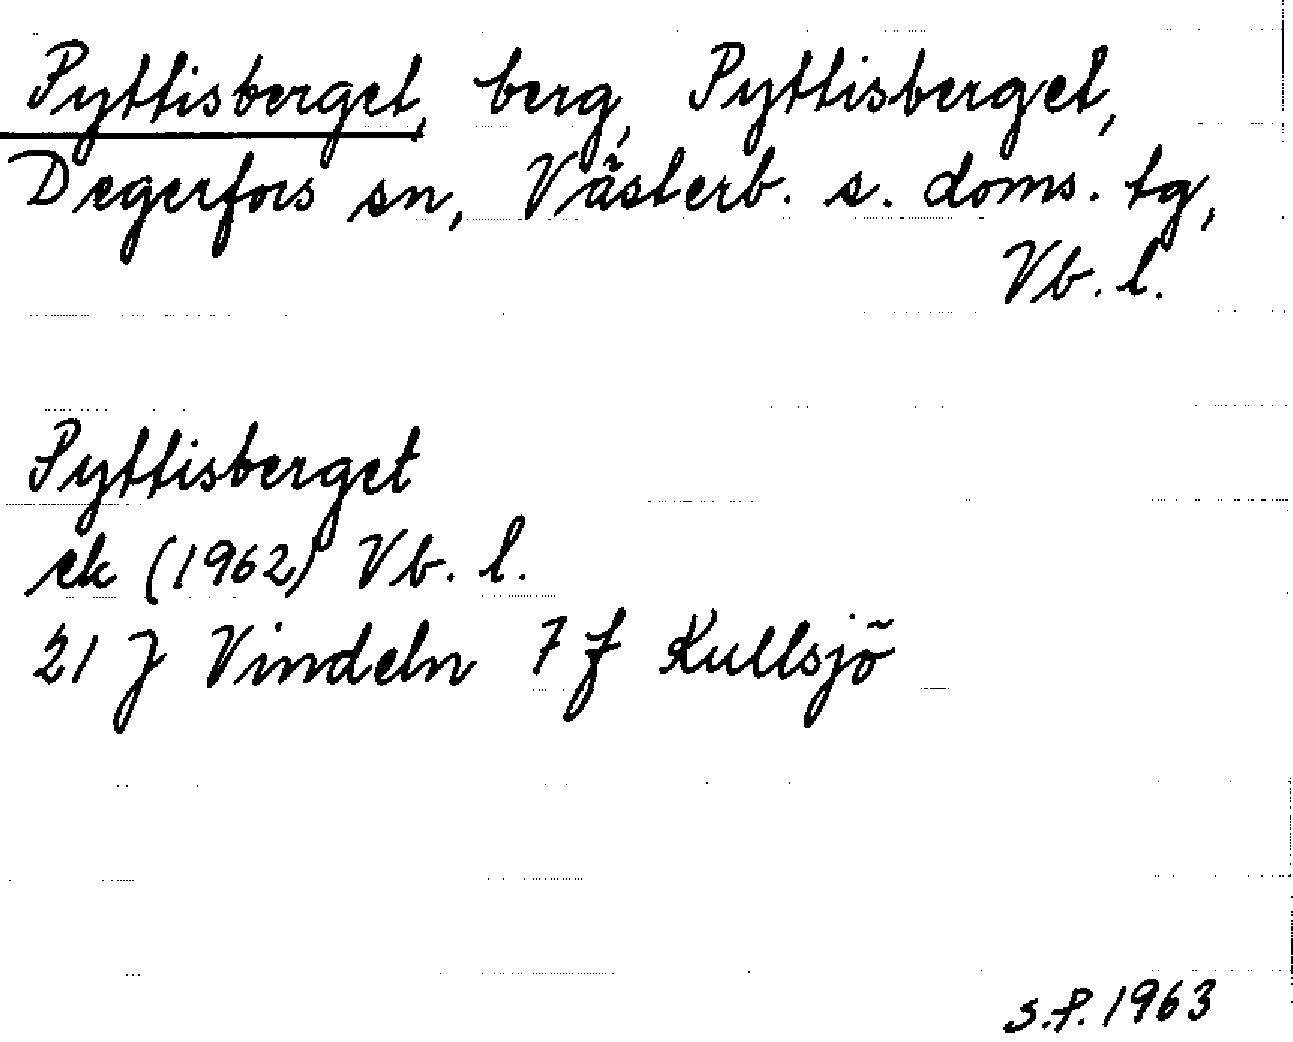 Pyttisberget, berg, Pyttisberget,
Degerfors sn, Västerb. s. doms. tg,
Vb. l.
Pyttisberget
ek (1962) Vb. l.
21 J Vindeln 7 f Kullsjö
S.P. 1963